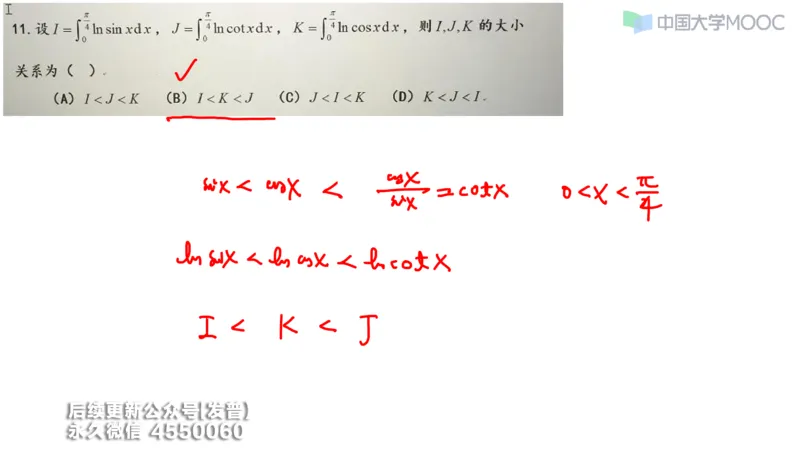 中国大学MOOC
11. 设 I = ∫₀^{π/4} ln sin x dx, J = ∫₀^{π/4} ln cot x dx, K = ∫₀^{π/4} ln cos x dx, 则 I, J, K 的大小
关系为 ( ).
(A) I < J < K (B) I < K < J (C) J < I < K (D) K < J < I.
sin x < cos x < cos x / sin x = cot x 0 < x < π/4
ln sin x < ln cos x < ln cot x
I < K < J
后续更新公众号[发普]
永久微信 4550060